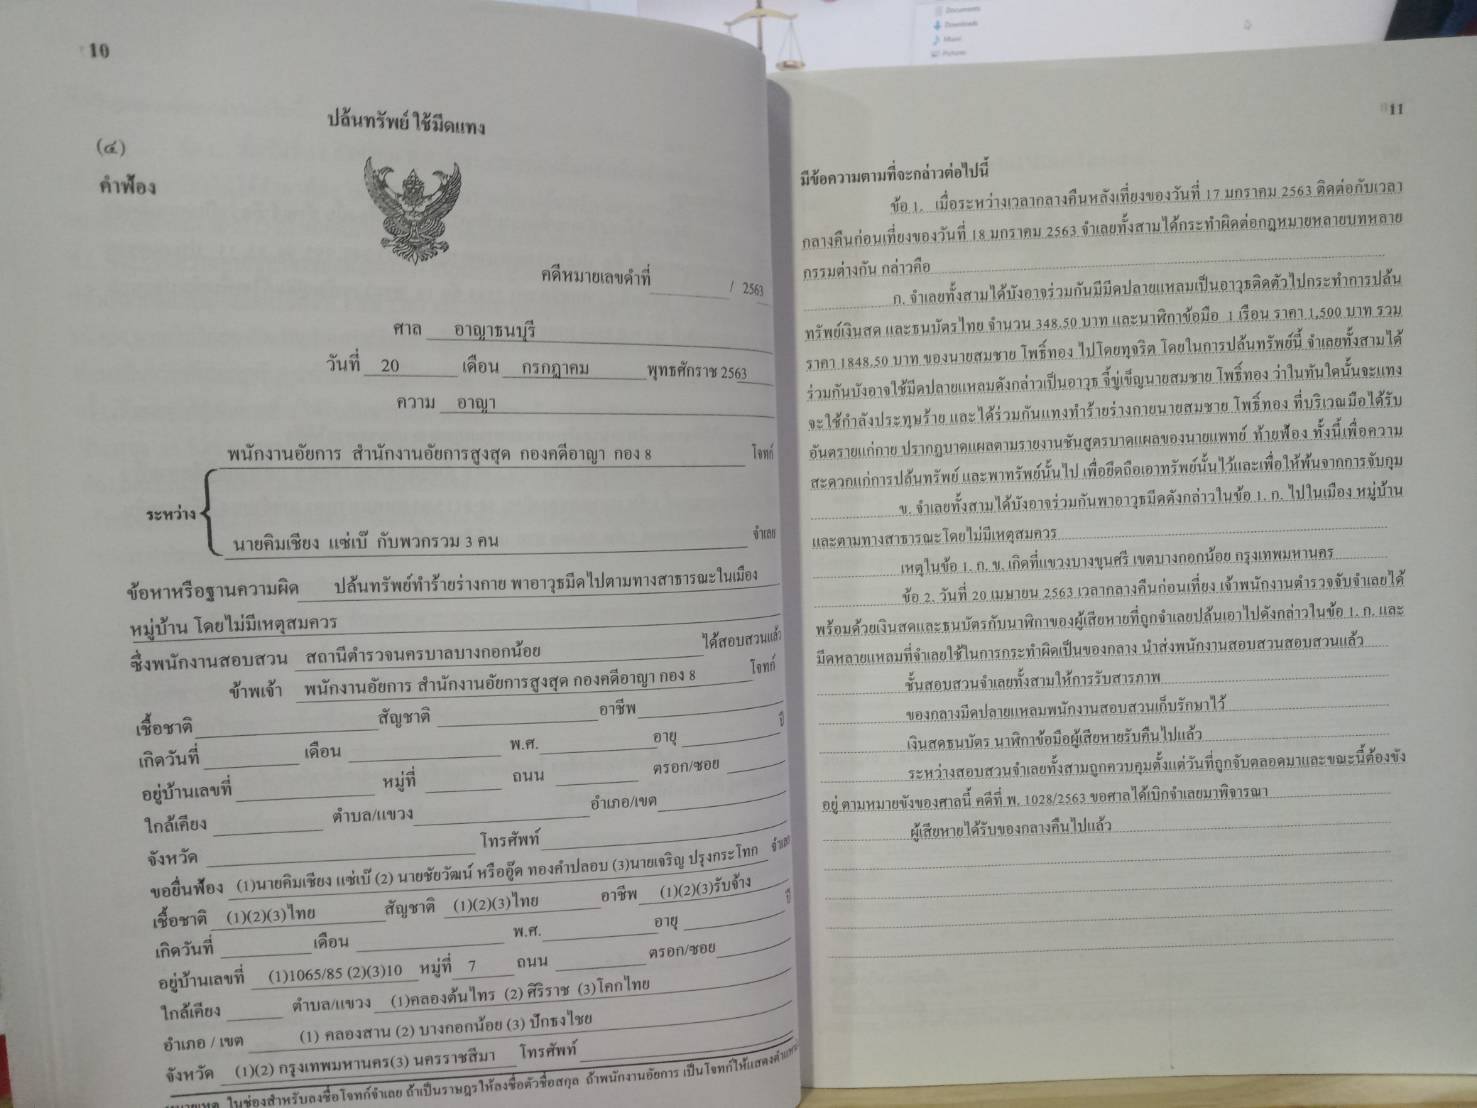 Documents
Downloads
Music
Pictures
10
ปล้นทรัพย์ ใช้มีดแทง
(๔)
คำฟ้อง
คดีหมายเลขดำที่ / 2563
ศาล อาญาธนบุรี
วันที่ 20 เดือน กรกฎาคม พุทธศักราช 2563
ความ อาญา
พนักงานอัยการ สำนักงานอัยการสูงสุด กองคดีอาญา กอง 8 โจทก์
ระหว่าง
นายคิมเชียง แซ่เบ๊ กับพวกรวม 3 คน จำเลย
ข้อหาหรือฐานความผิด ปล้นทรัพย์ทำร้ายร่างกาย พาอาวุธมีดไปตามทางสาธารณะในเมือง
หมู่บ้าน โดยไม่มีเหตุสมควร
ซึ่งพนักงานสอบสวน สถานีตำรวจนครบาลบางกอกน้อย ได้สอบสวนแล้ว
ข้าพเจ้า พนักงานอัยการ สำนักงานอัยการสูงสุด กองคดีอาญา กอง 8 โจทก์
เชื้อชาติ สัญชาติ อาชีพ
เกิดวันที่ เดือน พ.ศ. อายุ ปี
อยู่บ้านเลขที่ หมู่ที่ ถนน ตรอก/ซอย
ใกล้เคียง ตำบล/แขวง อำเภอ/เขต
จังหวัด โทรศัพท์
ขอยื่นฟ้อง (1)นายคิมเชียง แซ่เบ๊ (2) นายชัยวัฒน์ หรืออู๊ด ทองคำปลอบ (3)นายเจริญ ปรุงกระโทก จำเลย
เชื้อชาติ (1)(2)(3)ไทย สัญชาติ (1)(2)(3)ไทย อาชีพ (1)(2)(3)รับจ้าง
เกิดวันที่ เดือน พ.ศ. อายุ ปี
อยู่บ้านเลขที่ (1)1065/85 (2)(3)10 หมู่ที่ 7 ถนน ตรอก/ซอย
ใกล้เคียง ตำบล/แขวง (1)คลองต้นไทร (2) ศิริราช (3)โคกไทย
อำเภอ / เขต (1) คลองสาน (2) บางกอกน้อย (3) ปักธงไชย
จังหวัด (1)(2) กรุงเทพมหานคร(3) นครราชสีมา โทรศัพท์
หมายเหตุ ในช่องสำหรับลงชื่อโจทก์จำเลย ถ้าเป็นราษฎรให้ลงชื่อตัวชื่อสกุล ถ้าพนักงานอัยการ เป็นโจทก์ให้แสดงตำแหน่ง
11
มีข้อความตามที่จะกล่าวต่อไปนี้
ข้อ 1. เมื่อระหว่างเวลากลางคืนหลังเที่ยงของวันที่ 17 มกราคม 2563 ติดต่อกับเวลา
กลางคืนก่อนเที่ยงของวันที่ 18 มกราคม 2563 จำเลยทั้งสามได้กระทำผิดต่อกฎหมายหลายบทหลาย
กรรมต่างกัน กล่าวคือ
ก. จำเลยทั้งสามได้บังอาจร่วมกันมีมีดปลายแหลมเป็นอาวุธติดตัวไปกระทำการปล้น
ทรัพย์เงินสด และธนบัตรไทย จำนวน 348.50 บาท และนาฬิกาข้อมือ 1 เรือน ราคา 1,500 บาท รวม
ราคา 1848.50 บาท ของนายสมชาย โพธิ์ทอง ไปโดยทุจริต โดยในการปล้นทรัพย์นี้ จำเลยทั้งสามได้
ร่วมกันบังอาจใช้มีดปลายแหลมดังกล่าวเป็นอาวุธ จี้ขู่เข็ญนายสมชาย โพธิ์ทอง ว่าในทันใดนั้นจะแทง
จะใช้กำลังประทุษร้าย และได้ร่วมกันแทงทำร้ายร่างกายนายสมชาย โพธิ์ทอง ที่บริเวณมือได้รับ
อันตรายแก่กาย ปรากฏบาดแผลตามรายงานชันสูตรบาดแผลของนายแพทย์ ท้ายฟ้อง ทั้งนี้เพื่อความ
สะดวกแก่การปล้นทรัพย์ และพาทรัพย์นั้นไป เพื่อยึดถือเอาทรัพย์นั้นไว้และเพื่อให้พ้นจากการจับกุม
ข. จำเลยทั้งสามได้บังอาจร่วมกันพาอาวุธมีดดังกล่าวในข้อ 1. ก. ไปในเมือง หมู่บ้าน
และตามทางสาธารณะโดยไม่มีเหตุสมควร
เหตุในข้อ 1. ก. ข. เกิดที่แขวงบางขุนศรี เขตบางกอกน้อย กรุงเทพมหานคร
ข้อ 2. วันที่ 20 เมษายน 2563 เวลากลางคืนก่อนเที่ยง เจ้าพนักงานตำรวจจับจำเลยได้
พร้อมด้วยเงินสดและธนบัตรกับนาฬิกาของผู้เสียหายที่ถูกจำเลยปล้นเอาไปดังกล่าวในข้อ 1. ก. และ
มีดหลายแหลมที่จำเลยใช้ในการกระทำผิดเป็นของกลาง นำส่งพนักงานสอบสวนสอบสวนแล้ว
ชั้นสอบสวนจำเลยทั้งสามให้การรับสารภาพ
ของกลางมีดปลายแหลมพนักงานสอบสวนเก็บรักษาไว้
เงินสดธนบัตร นาฬิกาข้อมือผู้เสียหายรับคืนไปแล้ว
ระหว่างสอบสวนจำเลยทั้งสามถูกควบคุมตั้งแต่วันที่ถูกจับตลอดมาและขณะนี้ต้องขัง
อยู่ ตามหมายขังของศาลนี้ คดีที่ พ. 1028/2563 ขอศาลได้เบิกจำเลยมาพิจารณา
ผู้เสียหายได้รับของกลางคืนไปแล้ว